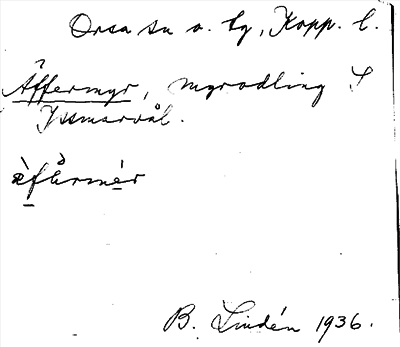 Orsa sn o. tg, Kopp. l.
Äffermyr, myrodling S
Yssmarvål.
B. Lindén 1936.